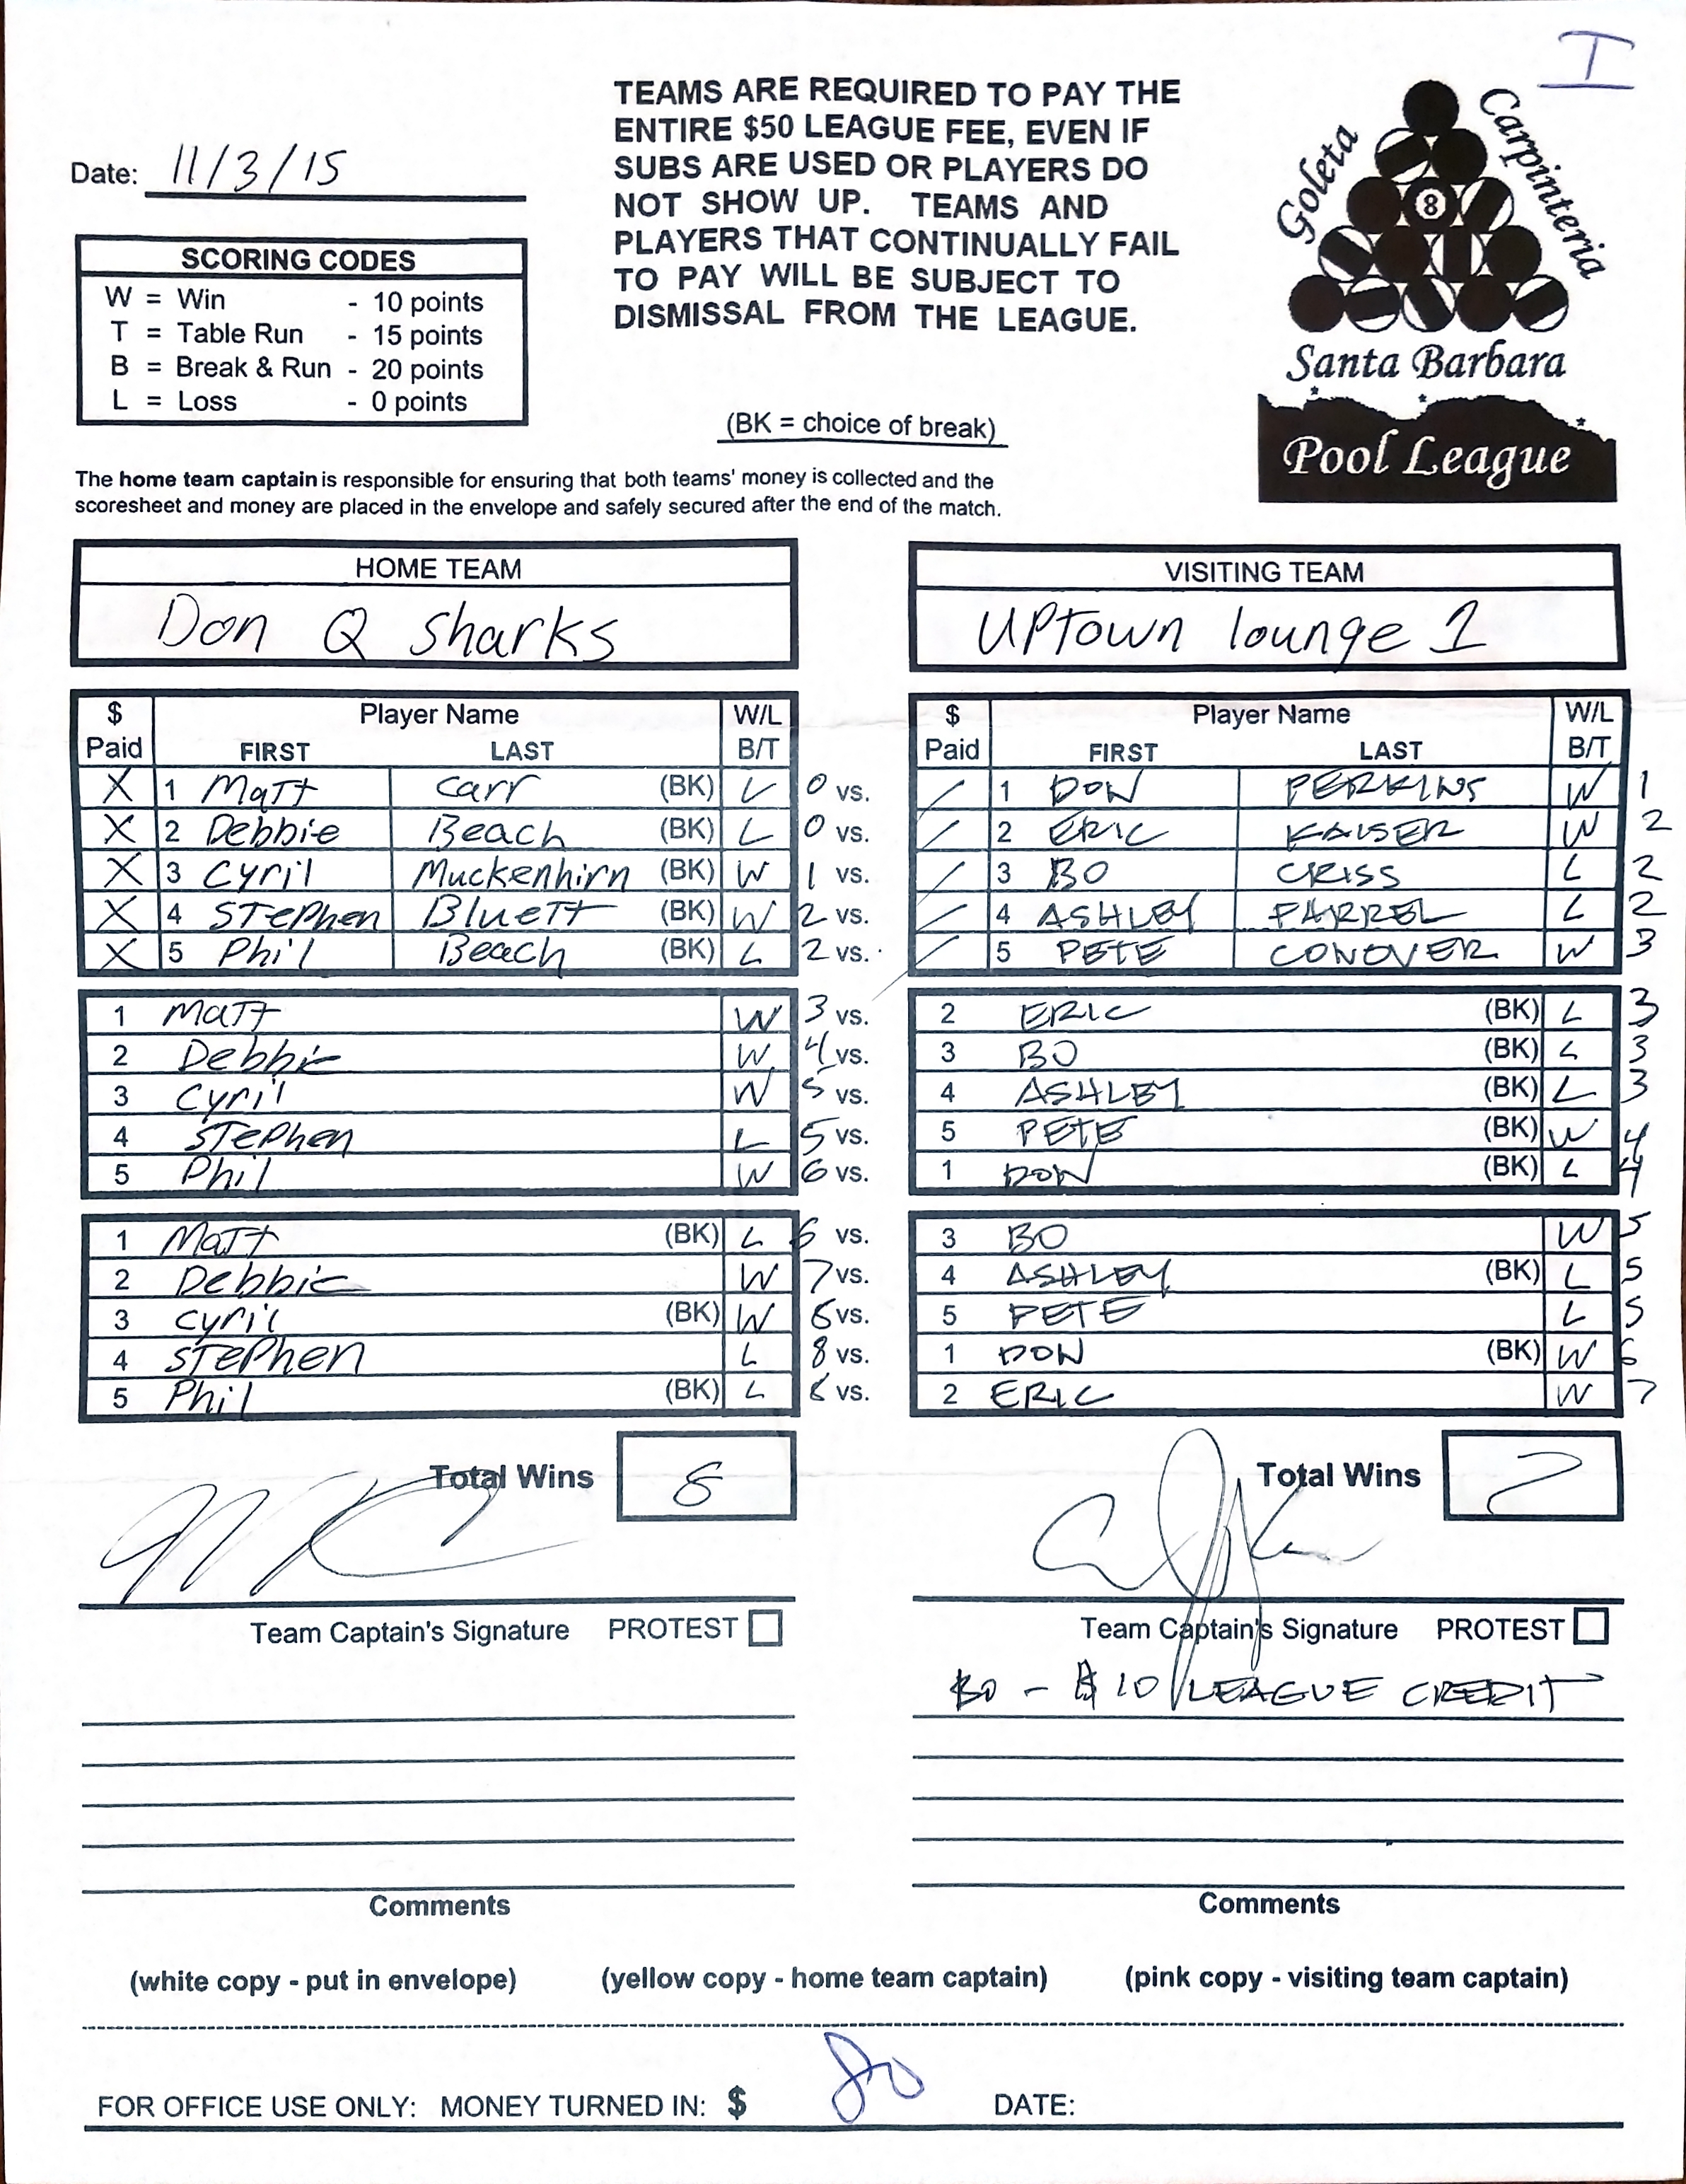 I
Date: 11/3/15
TEAMS ARE REQUIRED TO PAY THE
ENTIRE $50 LEAGUE FEE, EVEN IF
SUBS ARE USED OR PLAYERS DO
NOT SHOW UP. TEAMS AND
PLAYERS THAT CONTINUALLY FAIL
TO PAY WILL BE SUBJECT TO
DISMISSAL FROM THE LEAGUE.
Goleta
Carpinteria
8
Santa Barbara
Pool League
SCORING CODES
W = Win - 10 points
T = Table Run - 15 points
B = Break & Run - 20 points
L = Loss - 0 points
(BK = choice of break)
The home team captain is responsible for ensuring that both teams' money is collected and the
scoresheet and money are placed in the envelope and safely secured after the end of the match.
HOME TEAM VISITING TEAM
Don Q Sharks UPtown lounge 1
$ Player Name W/L $ Player Name W/L
Paid FIRST LAST B/T Paid FIRST LAST B/T
X 1 Matt Carr (BK) L 0 vs. / 1 DON PERKINS W 1
X 2 Debbie Beach (BK) L 0 vs. / 2 ERIC KAISER W 2
X 3 Cyril Muckenhirn (BK) W 1 vs. / 3 BO CRISS L 2
X 4 STePhen BlueTT (BK) W 2 vs. / 4 ASHLEY FARREL L 2
X 5 Phil Beach (BK) L 2 vs. / 5 PETE CONOVER W 3
1 MaTT W 3 vs. 2 ERIC (BK) L 3
2 Debbie W 4 vs. 3 BO (BK) L 3
3 Cyril W 5 vs. 4 ASHLEY (BK) L 3
4 STePhen L 5 vs. 5 PETE (BK) W 4
5 Phil W 6 vs. 1 DON (BK) L 4
1 MaTT (BK) L 6 vs. 3 BO W 5
2 Debbie W 7 vs. 4 ASHLEY (BK) L 5
3 Cyril (BK) W 8 vs. 5 PETE L 5
4 STePhen L 8 vs. 1 DON (BK) W 6
5 Phil (BK) L 8 vs. 2 ERIC W 7
Total Wins 8 Total Wins 7
Team Captain's Signature PROTEST Team Captain's Signature PROTEST
BO - $10 LEAGUE CREDIT
Comments Comments
(white copy - put in envelope) (yellow copy - home team captain) (pink copy - visiting team captain)
FOR OFFICE USE ONLY: MONEY TURNED IN: $ 80 DATE: